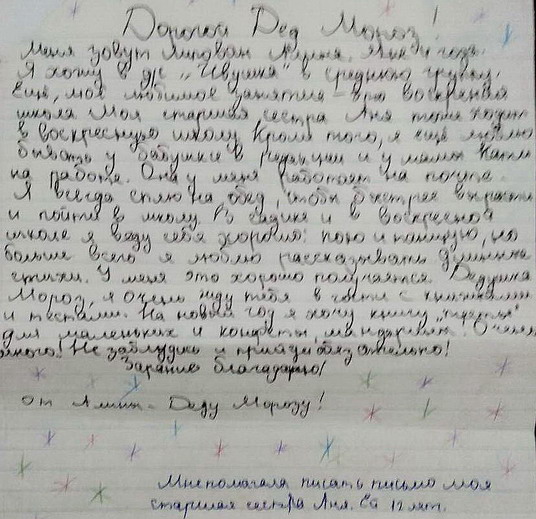 Дорогой Дед Мороз!
Меня зовут Алина. Мне 4 года.
Я хожу в д/с "Ивушка" в среднюю группу.
Ещё, моё любимое занятие - это воскресная
школа. Моя старшая сестра Аня тоже ходит
в воскресную школу. Кроме того, я ещё люблю
бывать у бабушки в редакции и у мамы Кати
на работе. Она у меня работает на почте.
Я всегда сплю на обед, чтобы быстрее вырасти
и пойти в школу. В садике и в воскресной
школе я веду себя хорошо: пою и танцую, но
больше всего я люблю рассказывать длинные
стихи. У меня это хорошо получается. Дедушка
Мороз, я очень жду тебя в гости с книжками
и тестами. На новый год я хочу книгу
для маленьких и конфеты, мандарины! Очень
много. Не заблудись и приходи обязательно!
Зарание благодарю!
от Алины - Деду Морозу!
Мне помагала писать письмо моя
старшая сестра Аня. Ей 12 лет.